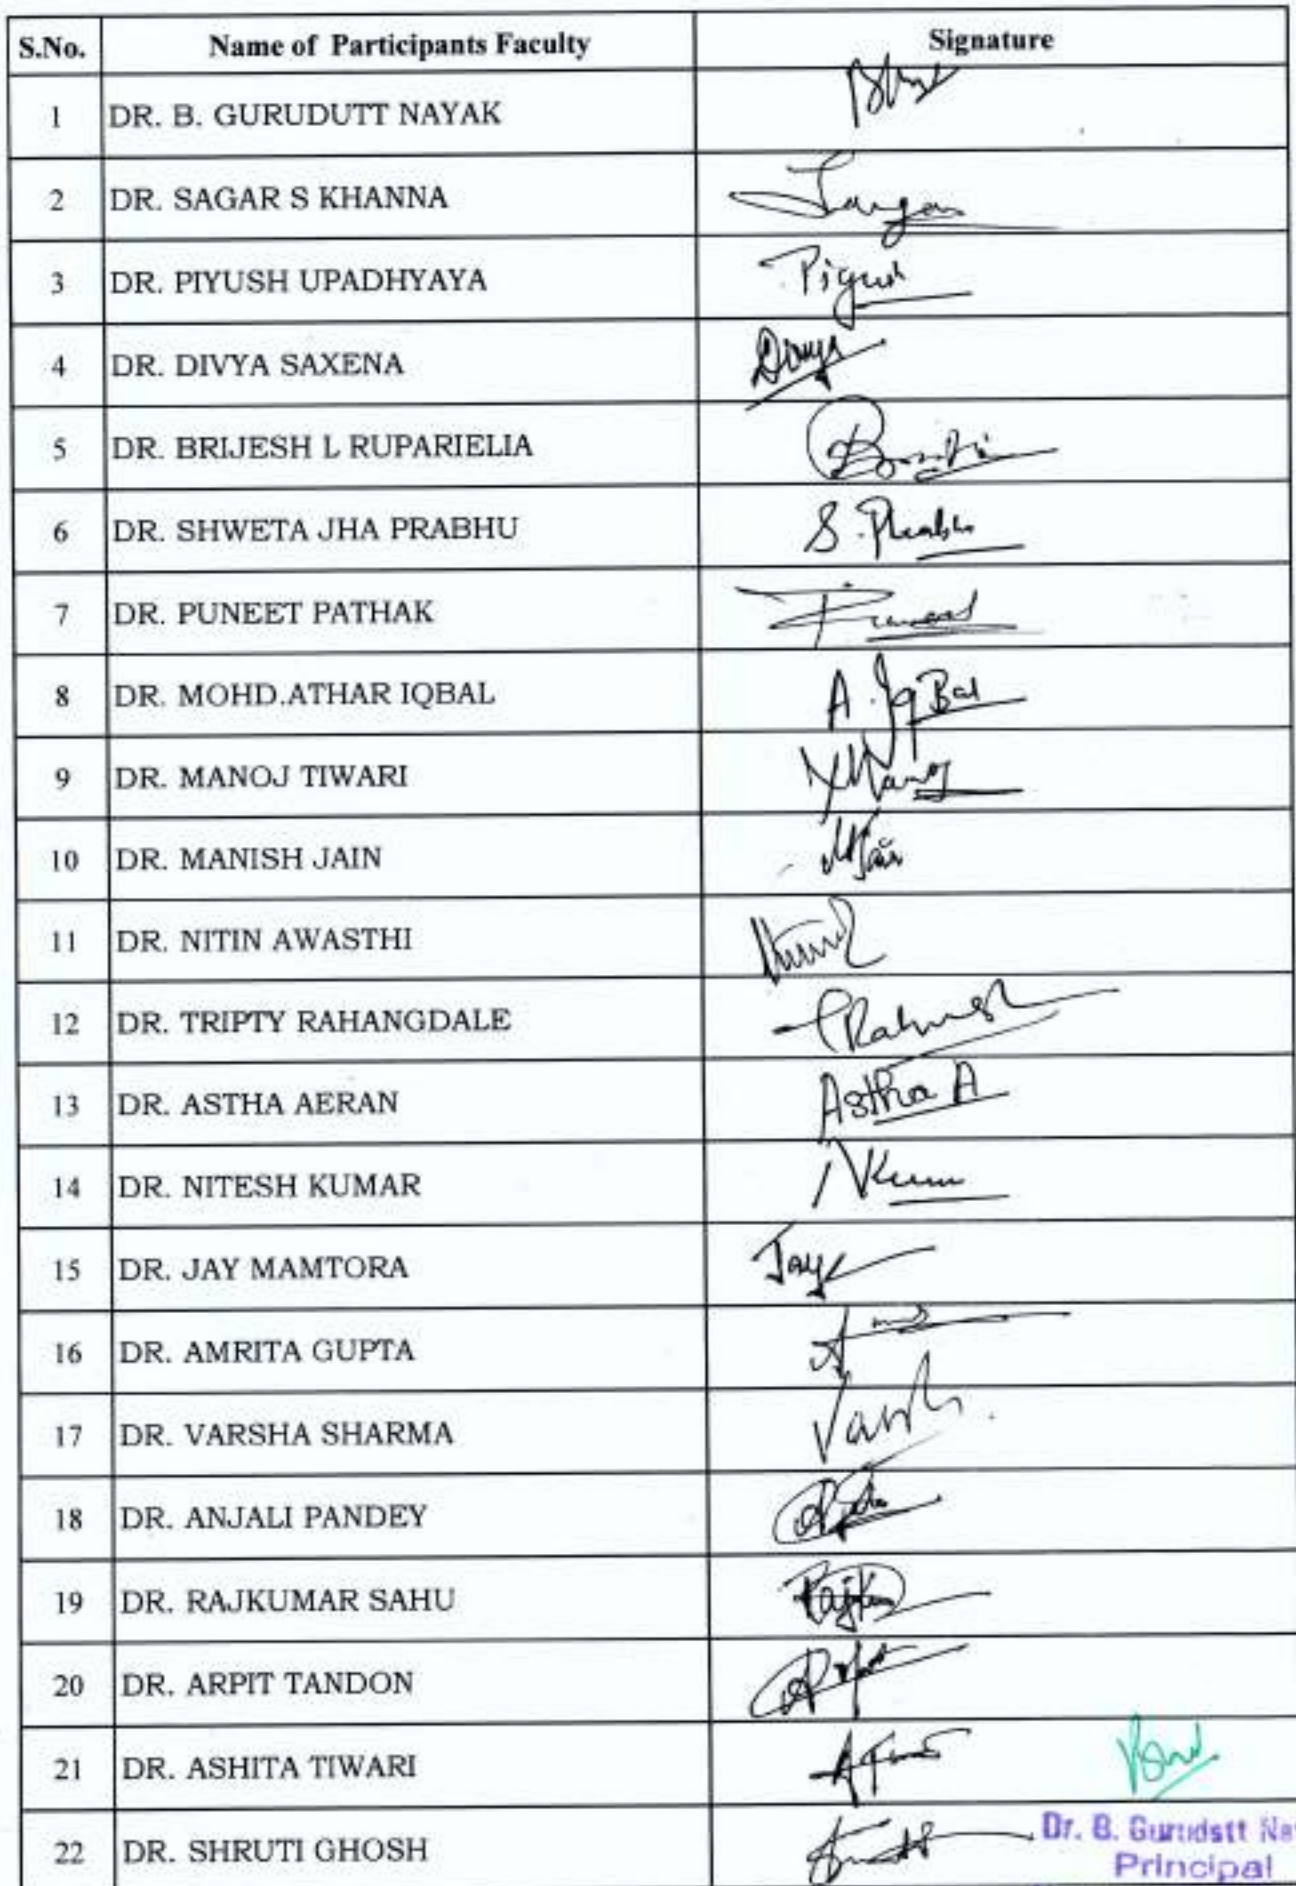 S.No. Name of Participants Faculty Signature
1 DR. B. GURUDUTT NAYAK
2 DR. SAGAR S KHANNA
3 DR. PIYUSH UPADHYAYA Piyush
4 DR. DIVYA SAXENA Divya
5 DR. BRIJESH L RUPARIELIA
6 DR. SHWETA JHA PRABHU S. Prabhu
7 DR. PUNEET PATHAK
8 DR. MOHD.ATHAR IQBAL A. IqBal
9 DR. MANOJ TIWARI Manoj
10 DR. MANISH JAIN
11 DR. NITIN AWASTHI
12 DR. TRIPTY RAHANGDALE
13 DR. ASTHA AERAN Astha A
14 DR. NITESH KUMAR
15 DR. JAY MAMTORA Jay
16 DR. AMRITA GUPTA
17 DR. VARSHA SHARMA
18 DR. ANJALI PANDEY
19 DR. RAJKUMAR SAHU
20 DR. ARPIT TANDON
21 DR. ASHITA TIWARI
22 DR. SHRUTI GHOSH
Dr. B. Gurudstt Na
Principal